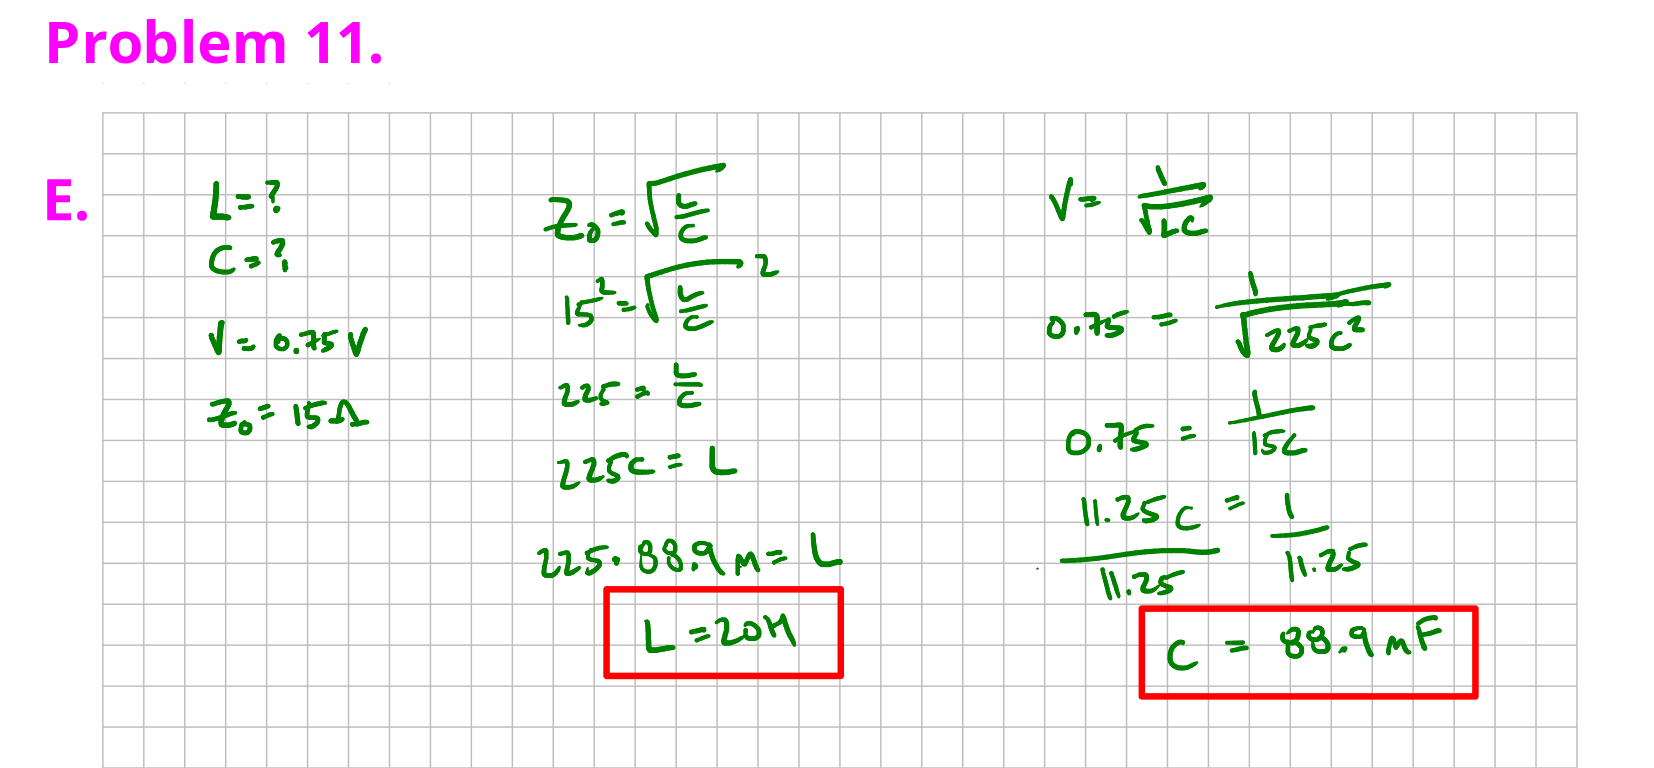 Problem 11.
E.
L = ?
C = ?
V = 0.75 V
Z₀ = 15 Ω
Z₀ = √(L/C)
15² = √(L/C)²
225 = L/C
225C = L
225 · 88.9 m = L
L = 20H
V = 1/√(LC)
0.75 = 1/√(225C²)
0.75 = 1/15C
11.25C/11.25 = 1/11.25
C = 88.9 mF